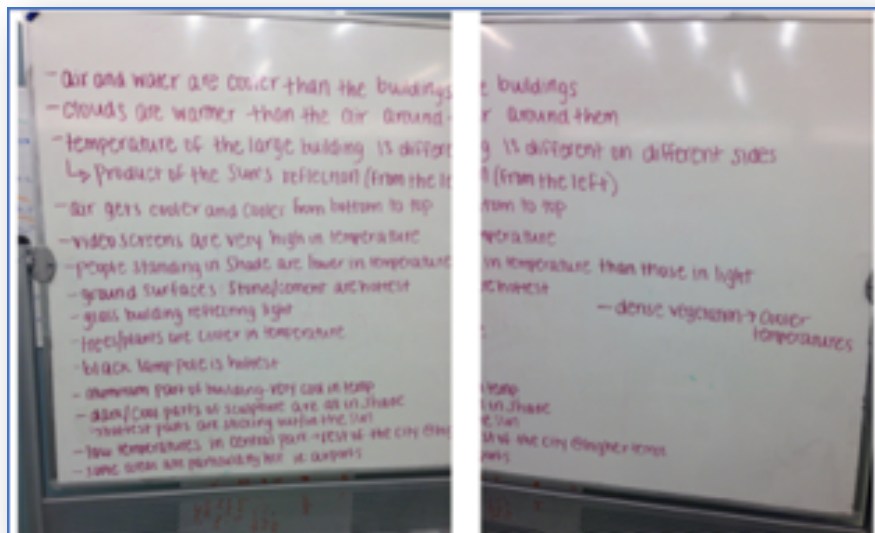 - air and water are cooler than the buildings
- clouds are warmer than the air around
- temperature of the large building is differe
↳ Product of the sun's reflection (from the le
- air gets cooler and cooler from bottom to top
- video screens are very high in temperature
- people standing in shade are lower in temperature
- ground surfaces: Stone/cement are hottest
- glass building reflecting light
- trees/plants are cooler in temperature
- black lamp pole is hottest
- aluminum part of building very cool in temp
- dark/cool parts of sculpture are all in shade
hottest parts are sticking out in the sun
- low temperatures in central park → rest of the city @ hig
- some areas are particularly hot ie airports
e buildings
r around them
g is different on different sides
n (from the left)
tom to top
mperature
in temperature than those in light
re hottest
- dense vegetation → cooler
temperatures
n temp
ll in shade
he sun
st of the city @ higher temps
ports